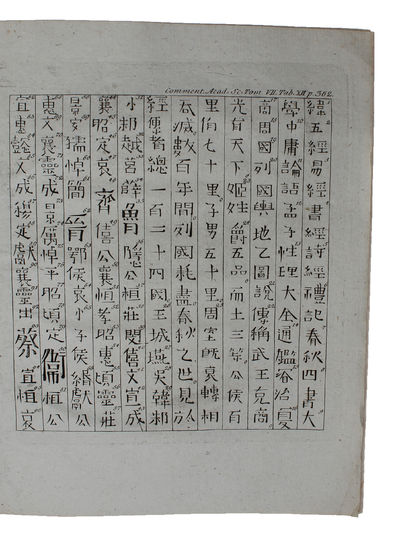 Comment. Acad. Sc. Tom. VII. Tab. XII p. 362.
緯五經易經書經詩經禮記春秋四書大
學中庸論語孟子性理大全通鑑治夏
商周國列國輿地之圖說傳稱武王克商
光有天下姬姓爵五品而土三等公侯百
里伯七十里子男五十里周室旣衰轉相
吞滅數百年間列國耗盡春秋之世見於
經傳者總一百二十四國王城燕吳韓邾
小邾越莒薛魯隱公桓莊閔僖文宣成
襄昭定哀齊僖公襄桓孝昭惠頃靈莊
景安孺悼簡晉鄂侯哀小子侯緡獻公
惠文襄靈成景厲悼平昭頃定衛桓公
宣惠懿文成穆定獻襄靈出蔡宣桓哀